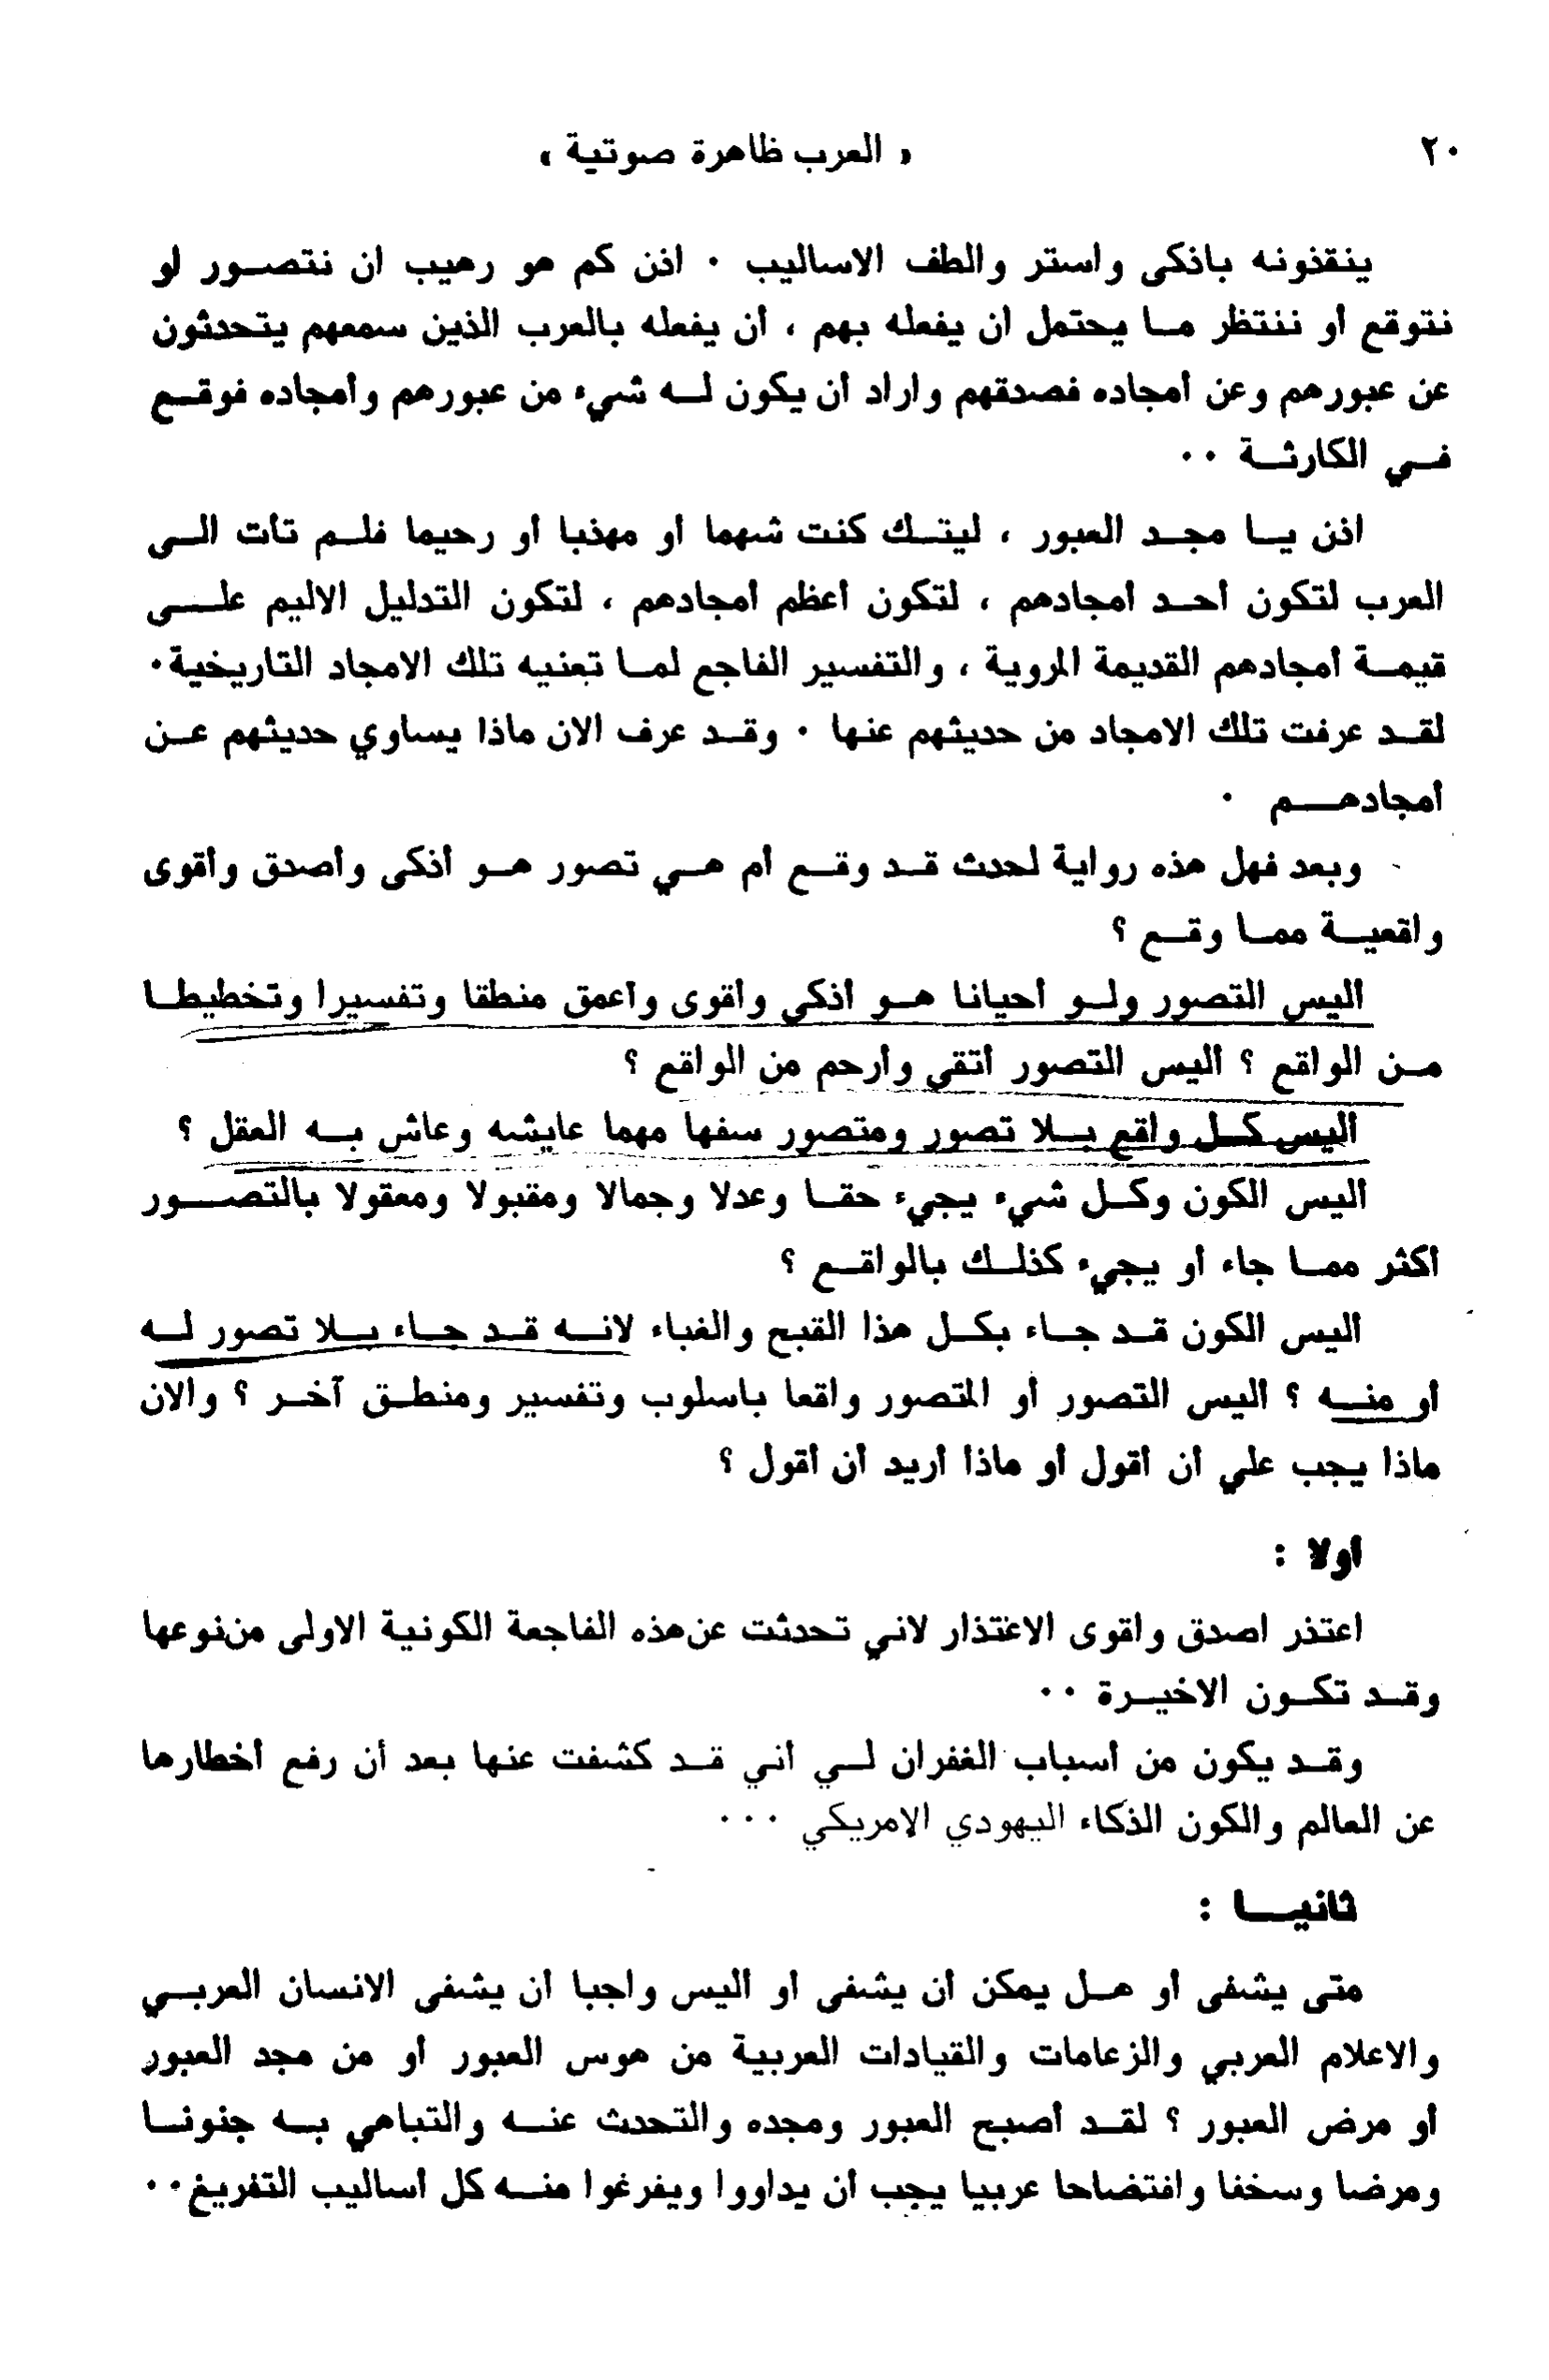 ٢٠
« العرب ظاهرة صوتية »
ينقذونه باذكى واستر والطف الاساليب ٠ اذن كم هو رهيب ان نتصور لو
نتوقع أو ننتظر ما يحتمل ان يفعله بهم ، أن يفعله بالعرب الذين سمعهم يتحدثون
عن عبورهم وعن أمجاده فصدقهم واراد أن يكون له شيء من عبورهم وأمجاده فوقع
في الكارثة ٠٠
اذن يا مجد العبور ، ليتك كنت شهما أو مهذبا أو رحيما فلم تأت الى
العرب لتكون أحد امجادهم ، لتكون أعظم امجادهم ، لتكون التدليل الاليم على
قيمة أمجادهم القديمة المروية ، والتفسير الفاجع لما تعنيه تلك الامجاد التاريخية ٠
لقد عرفت تلك الامجاد من حديثهم عنها ٠ وقد عرف الان ماذا يساوي حديثهم عن
أمجادهم ٠
وبعد فهل هذه رواية لحدث قد وقع أم هي تصور هو أذكى وأصدق وأقوى
واقعية مما وقع ؟
أليس التصور ولو أحيانا هو أذكى وأقوى وأعمق منطقا وتفسيرا وتخطيطا
من الواقع ؟ اليس التصور أتقى وأرحم من الواقع ؟
أليس كل واقع بلا تصور ومتصور سفها مهما عايشه وعاش به العقل ؟
أليس الكون وكل شيء يجيء حقا وعدلا وجمالا ومقبولا ومعقولا بالتصور
أكثر مما جاء أو يجيء كذلك بالواقع ؟
اليس الكون قد جاء بكل هذا القبح والغباء لانه قد جاء بلا تصور له
أو منه ؟ اليس التصور أو المتصور واقعا باسلوب وتفسير ومنطق آخر ؟ والان
ماذا يجب علي أن أقول أو ماذا أريد أن أقول ؟
اولا :
اعتذر اصدق واقوى الاعتذار لاني تحدثت عن هذه الفاجعة الكونية الاولى من نوعها
وقد تكون الاخيرة ٠٠
وقد يكون من أسباب الغفران لي أني قد كشفت عنها بعد أن رفع أخطارها
عن العالم والكون الذكاء اليهودي الامريكي ٠٠٠
ثانيا :
متى يشفى أو هل يمكن أن يشفى أو اليس واجبا أن يشفى الانسان العربي
والاعلام العربي والزعامات والقيادات العربية من هوس العبور أو من مجد العبور
أو مرض العبور ؟ لقد أصبح العبور ومجده والتحدث عنه والتباهي به جنونا
ومرضا وسخفا وافتضاحا عربيا يجب أن يداووا ويفرغوا منه كل أساليب التفريغ ٠٠